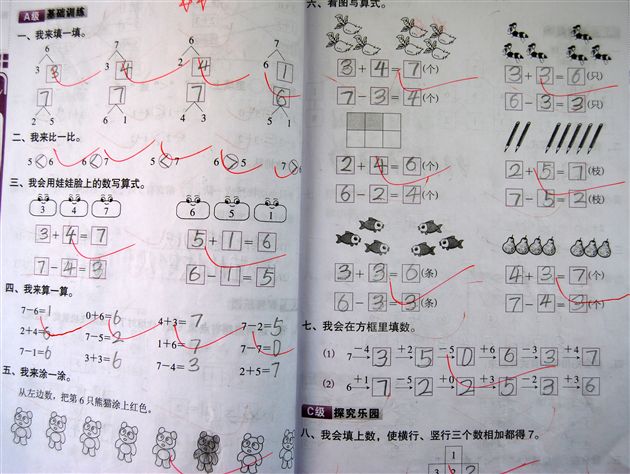 A级 基础训练
一、我来填一填。
6 7 6 7
3 3 3 4 2 4 6 1
7 7 7 6
2 5 6 1 4 3 5 1
二、我来比一比。
5<6 6<7 5<7 6>5 7>
三、我会用娃娃脸上的数写算式。
3 4 7 6 5 1
3+4=7 5+1=6
7-4=3 6-1=5
四、我来算一算。
7-6=1 0+6=6 4+3=7 7-2=5
2+4=6 7-5=2 1+6=7 7-7=0
7-1=6 3+3=6 7-4=3 2+5=7
五、我来涂一涂。
从左边数，把第6只熊猫涂上红色。
六、看图写算式。
3+4=7(个) 3+3=6(只)
7-3=4(个) 6-3=3(只)
2+4=6(个) 2+5=7(枝)
6-2=4(个) 7-5=2(枝)
3+3=6(条) 4+3=7(个)
6-3=3(条) 7-4=3(个)
七、我会在方框里填数。
(1) 7 -4→ 3 +2→ 5 -5→ 0 +6→ 6 -3→ 3 +4→ 7
(2) 6 +1→ 7 -5→ 2 +0→ 2 +3→ 5 -2→ 3 +3→ 6
C级 探究乐园
八、我会填上数，使横行、竖行三个数相加都得7。
1
3